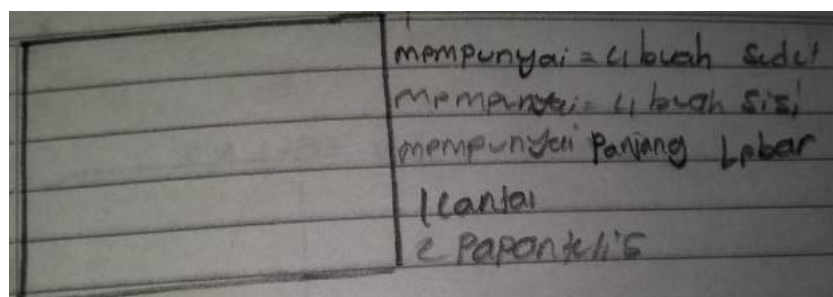 mempunyai = 4 buah sudut
mempunyai = 4 buah sisi
mempunyai panjang Lebar
1 Lantai
2 Papan tulis